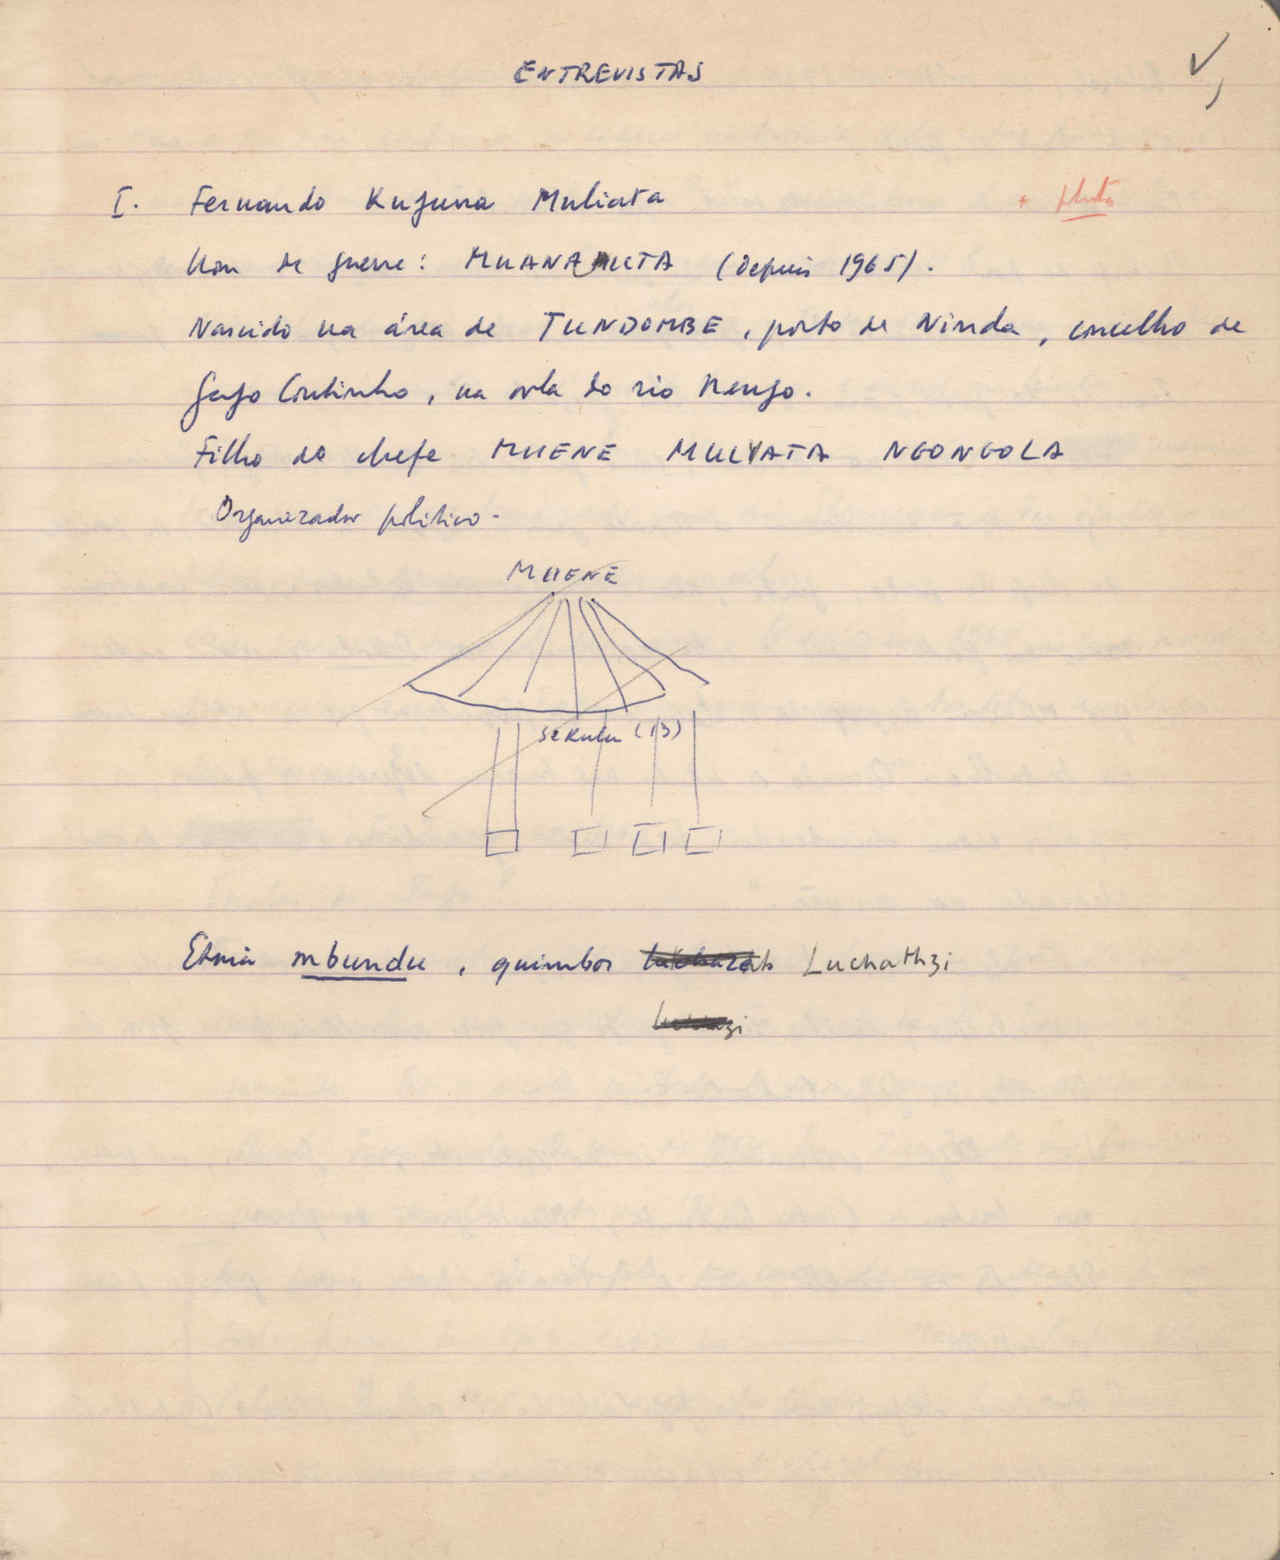 ENTREVISTAS
I. Fernando Kufuna Muliata
+ photo
Nom de guerre: MUANAMUTA (depuis 1965).
Nascido na área de TUNDOMBE, posto de Ninda, concelho de
Gago Coutinho, na orla do rio Nengo.
Filho do chefe MUENE MULYATA NGONGOLA
Organizador político.
MUENE
SEKULU (13)
Etnia mbundu, quimbos Luchathzi